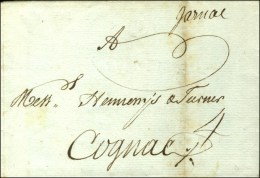 Jarnac
A
Mess.rs Hennessy & Turner
Cognac